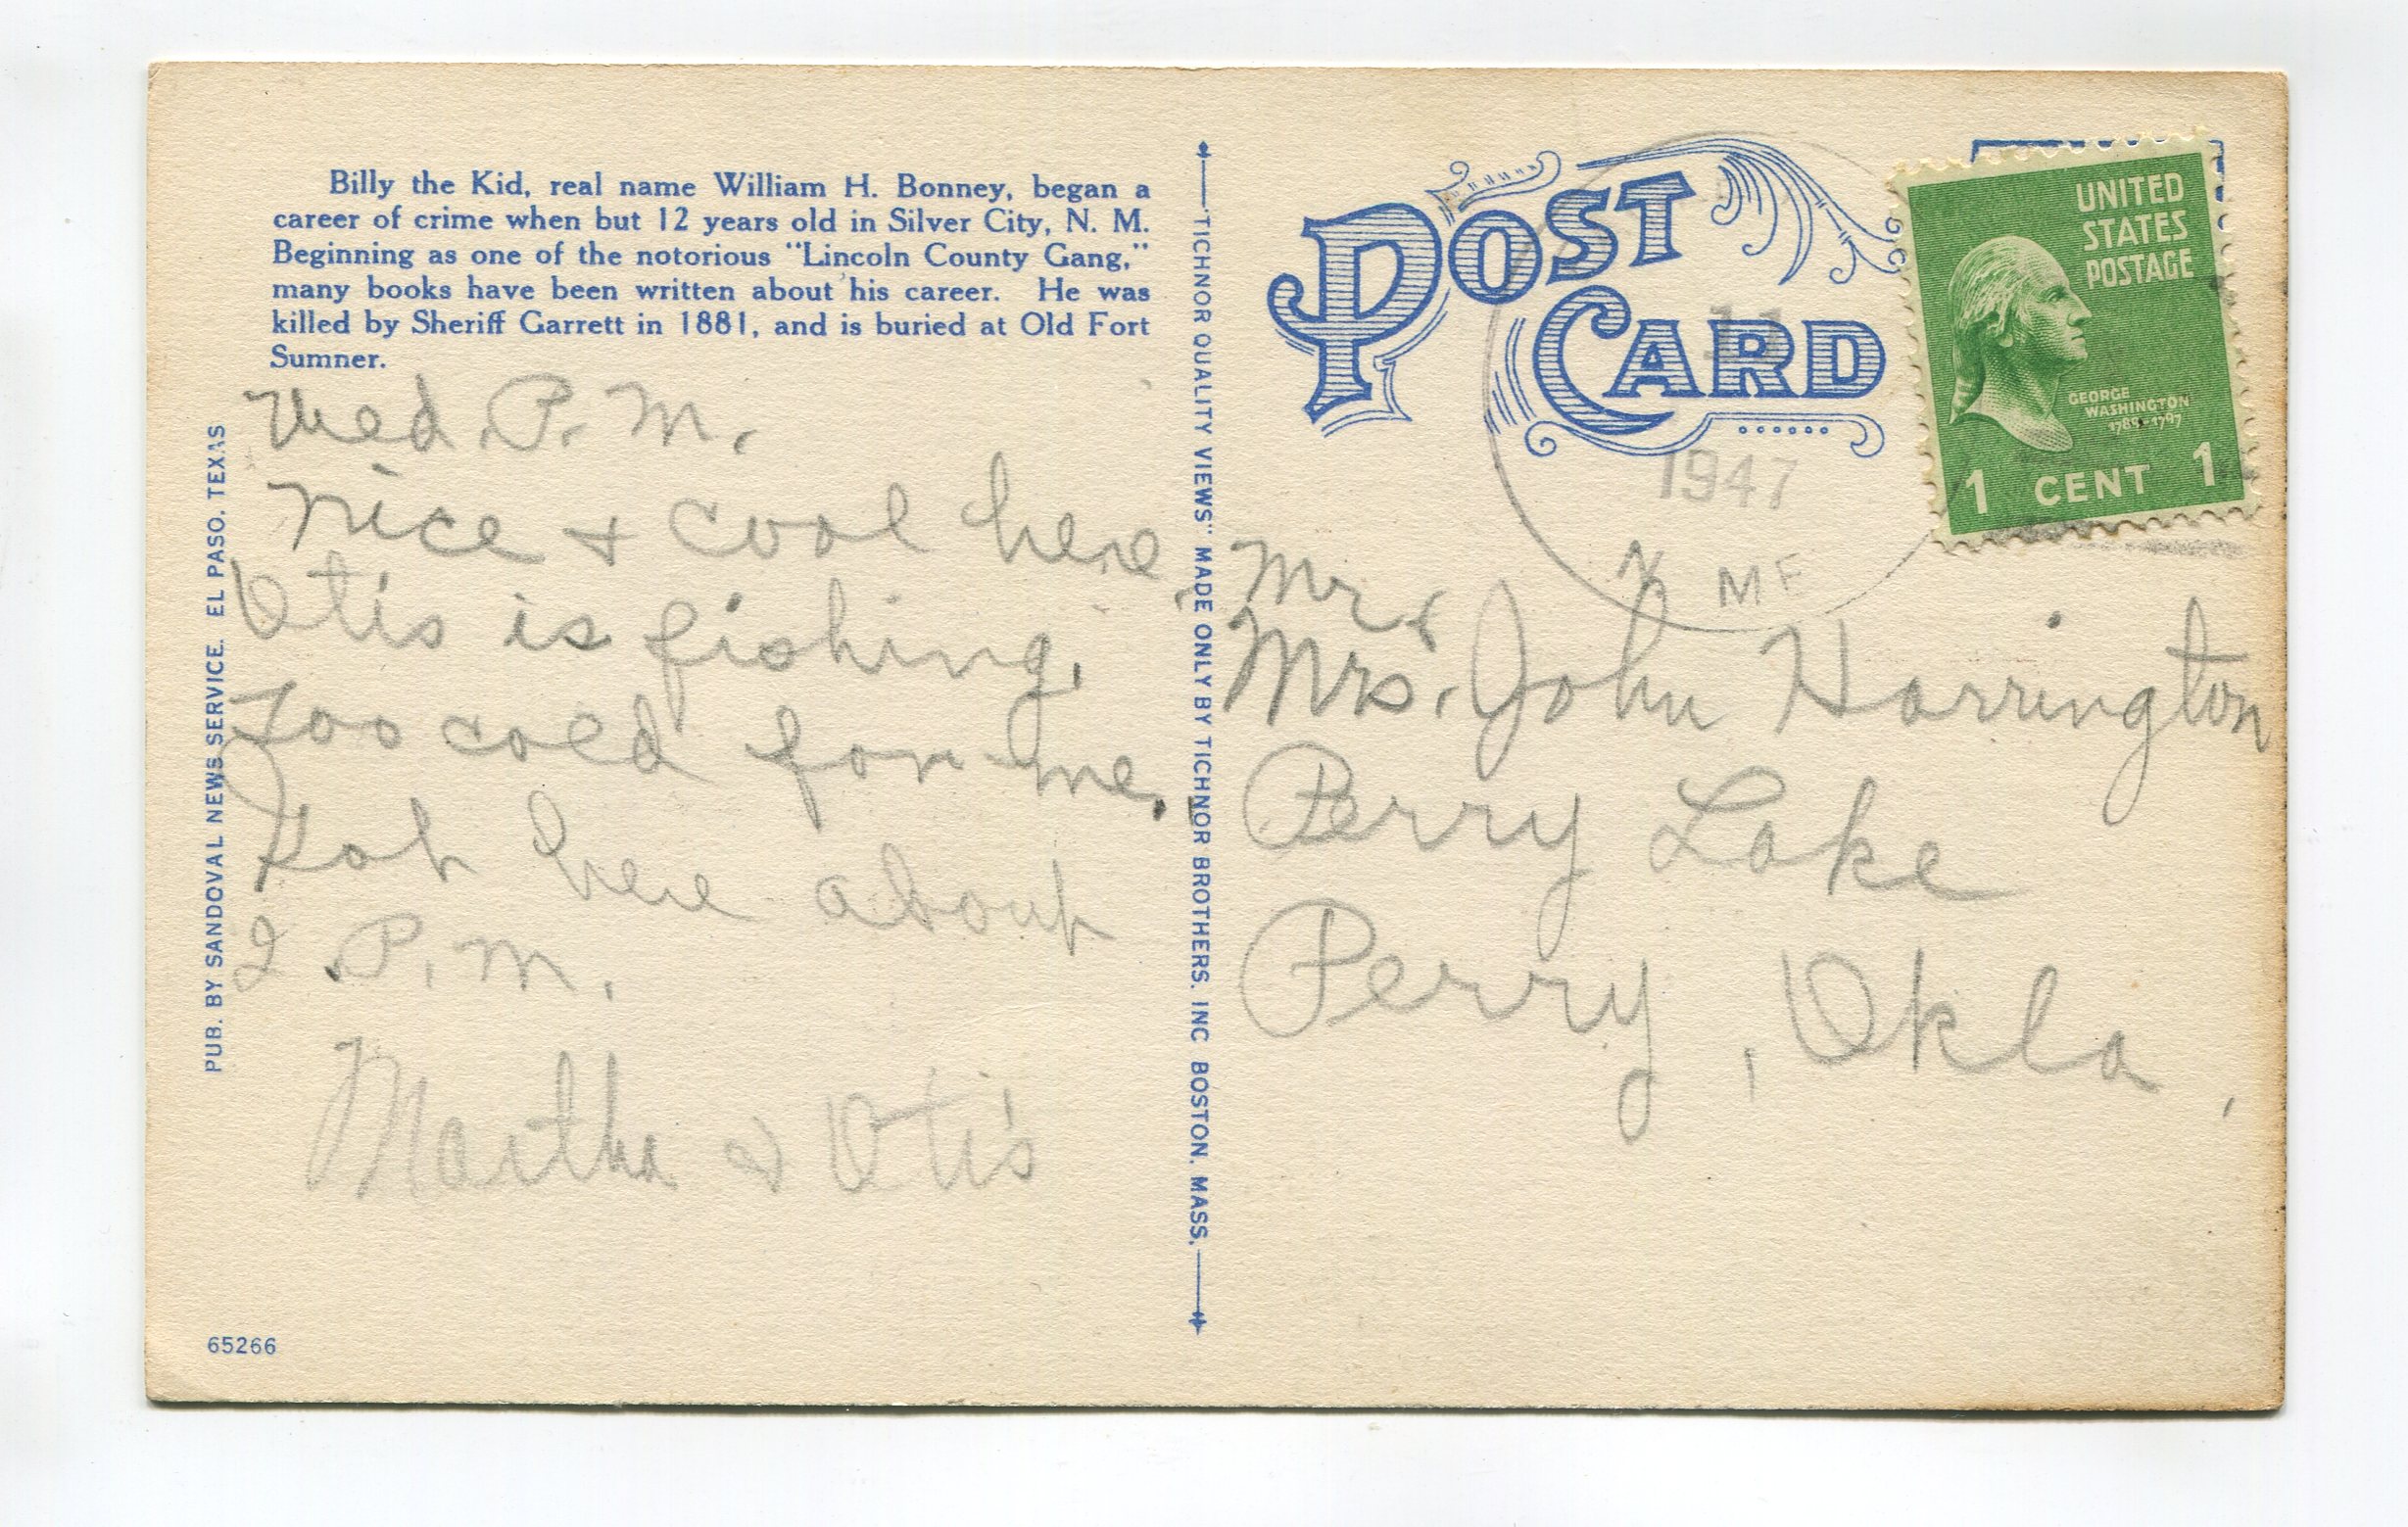 Billy the Kid, real name William H. Bonney, began a
career of crime when but 12 years old in Silver City, N. M.
Beginning as one of the notorious "Lincoln County Gang,"
many books have been written about his career. He was
killed by Sheriff Garrett in 1881, and is buried at Old Fort
Sumner.
Wed. P. M.
Nice + cool here
Otis is fishing.
Too cold for me.
Got here about
2 P. M.
Martha & Otis
PUB. BY SANDOVAL NEWS SERVICE. EL PASO, TEXAS
65266
"TICHNOR QUALITY VIEWS" MADE ONLY BY TICHNOR BROTHERS. INC BOSTON. MASS.
POST
CARD
11
1947
N MEX
UNITED
STATES
POSTAGE
GEORGE
WASHINGTON
1789-1797
1 CENT 1
Mr &
Mrs. John Harrington
Perry Lake
Perry, Okla,